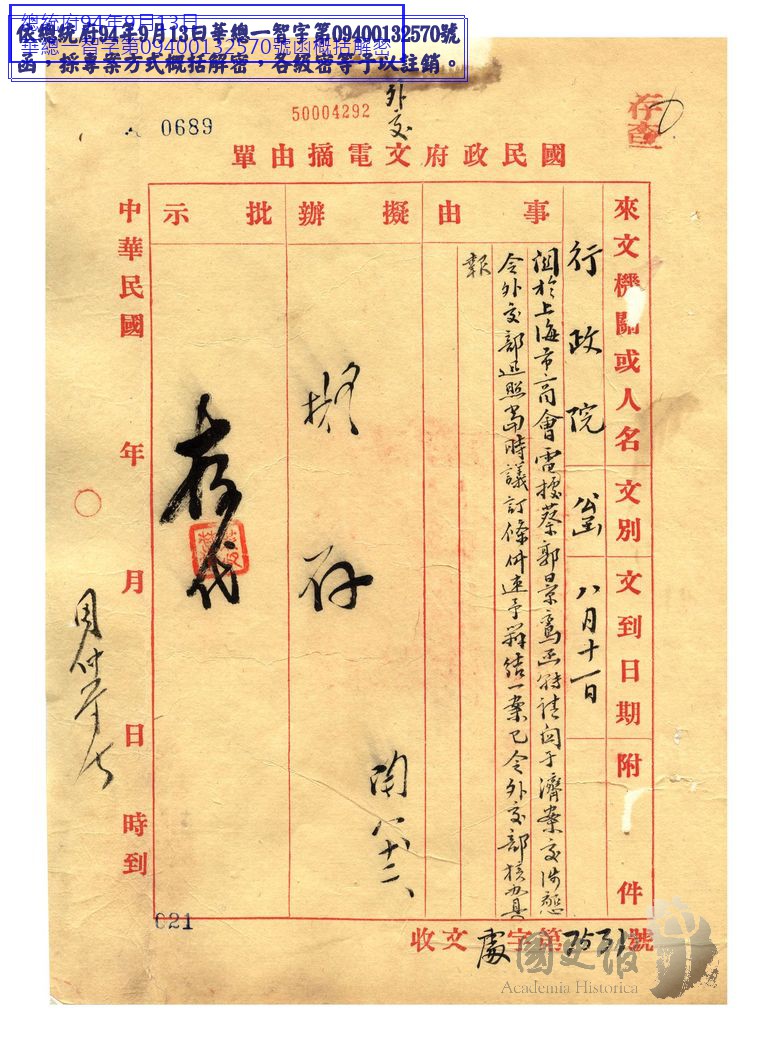 總統府94年9月13日
華總一智字第09400132570號函概括解密
依總統府94年9月13日華總一智字第09400132570號
函，採專案方式概括解密，各級密等予以註銷。
外交
50004292
0689
存查
國民政府文電摘由單
來文機關或人名
文別
文到日期
附件
行政院
公函
八月十一日
事由
關於上海市商會電據蔡郭景鸞函稱請關于濟案交涉懇
令外交部迅照當時議訂條件速予辦結一案已令外交部核辦具
報
擬辦
擬
存
批示
存
代
中華民國 年 月 日 時到
021
收文處字第7531號
國史館
Academia Historica